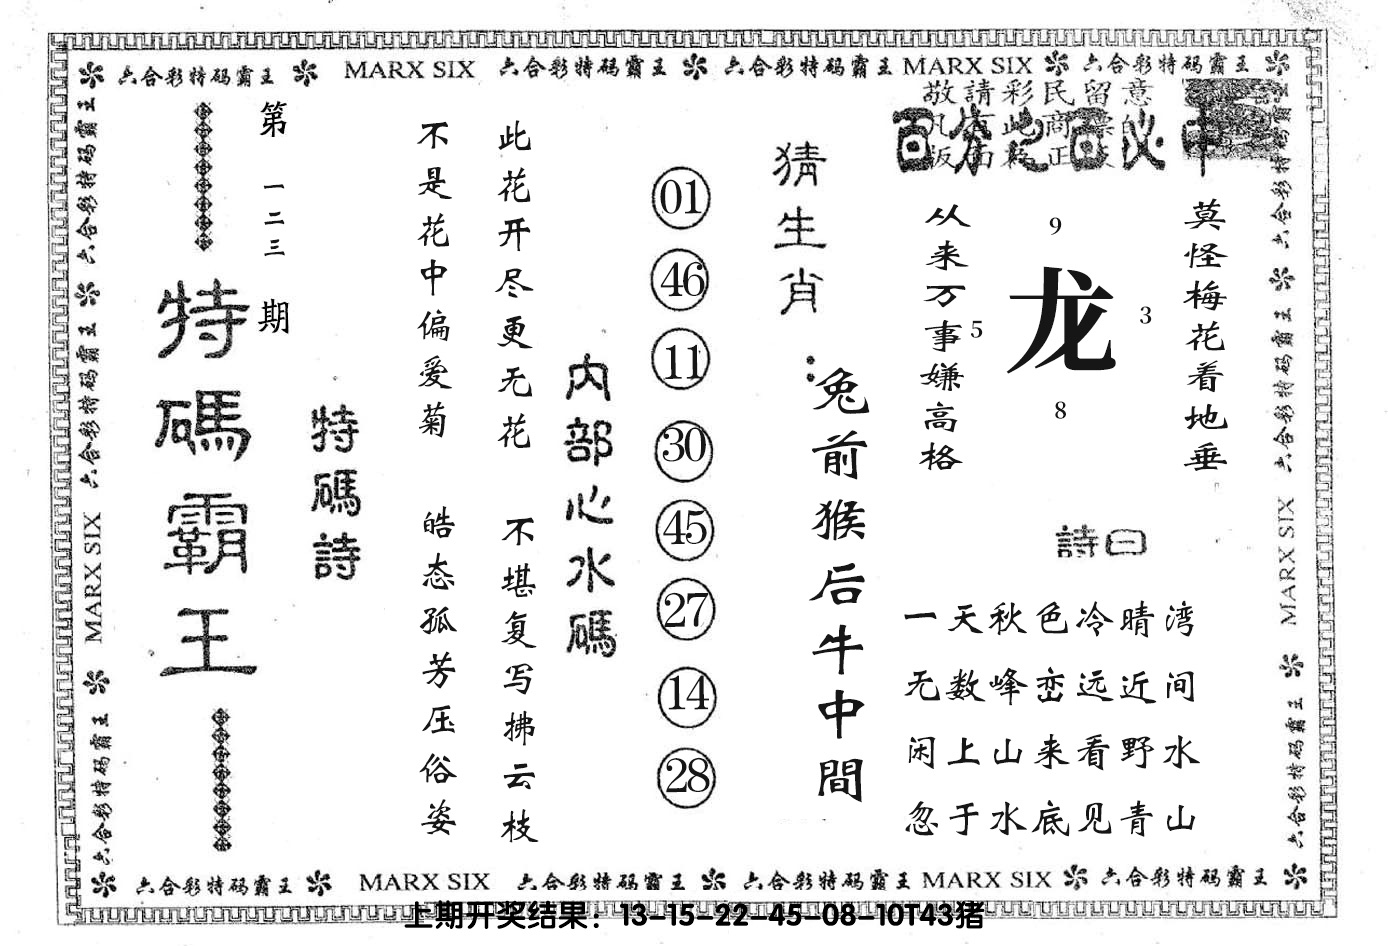 六合彩特码霸王 MARX SIX 六合彩特码霸王 六合彩特码霸王 MARX SIX 六合彩特码霸王
敬請彩民留意
百分之百必中
莫怪梅花着地垂
从来万事嫌高格
9
5
龙
3
8
詩曰
一天秋色冷晴湾
无数峰峦远近间
闲上山来看野水
忽于水底见青山
猜生肖:
兔前猴后牛中間
01
46
11
30
45
27
14
28
内部心水碼
此花开尽更无花
不堪复写拂云枝
不是花中偏爱菊
皓态孤芳压俗姿
特碼詩
第一二三期
特碼霸王
六合彩特码霸王 六合彩特码霸王 MARX SIX 六合彩特码霸王
六合彩特码霸王 六合彩特码霸王 MARX SIX 六合彩特码霸王
六合彩特码霸王 MARX SIX 六合彩特码霸王 六合彩特码霸王 MARX SIX 六合彩特码霸王
上期开奖结果：13-15-22-45-08-10T43猪